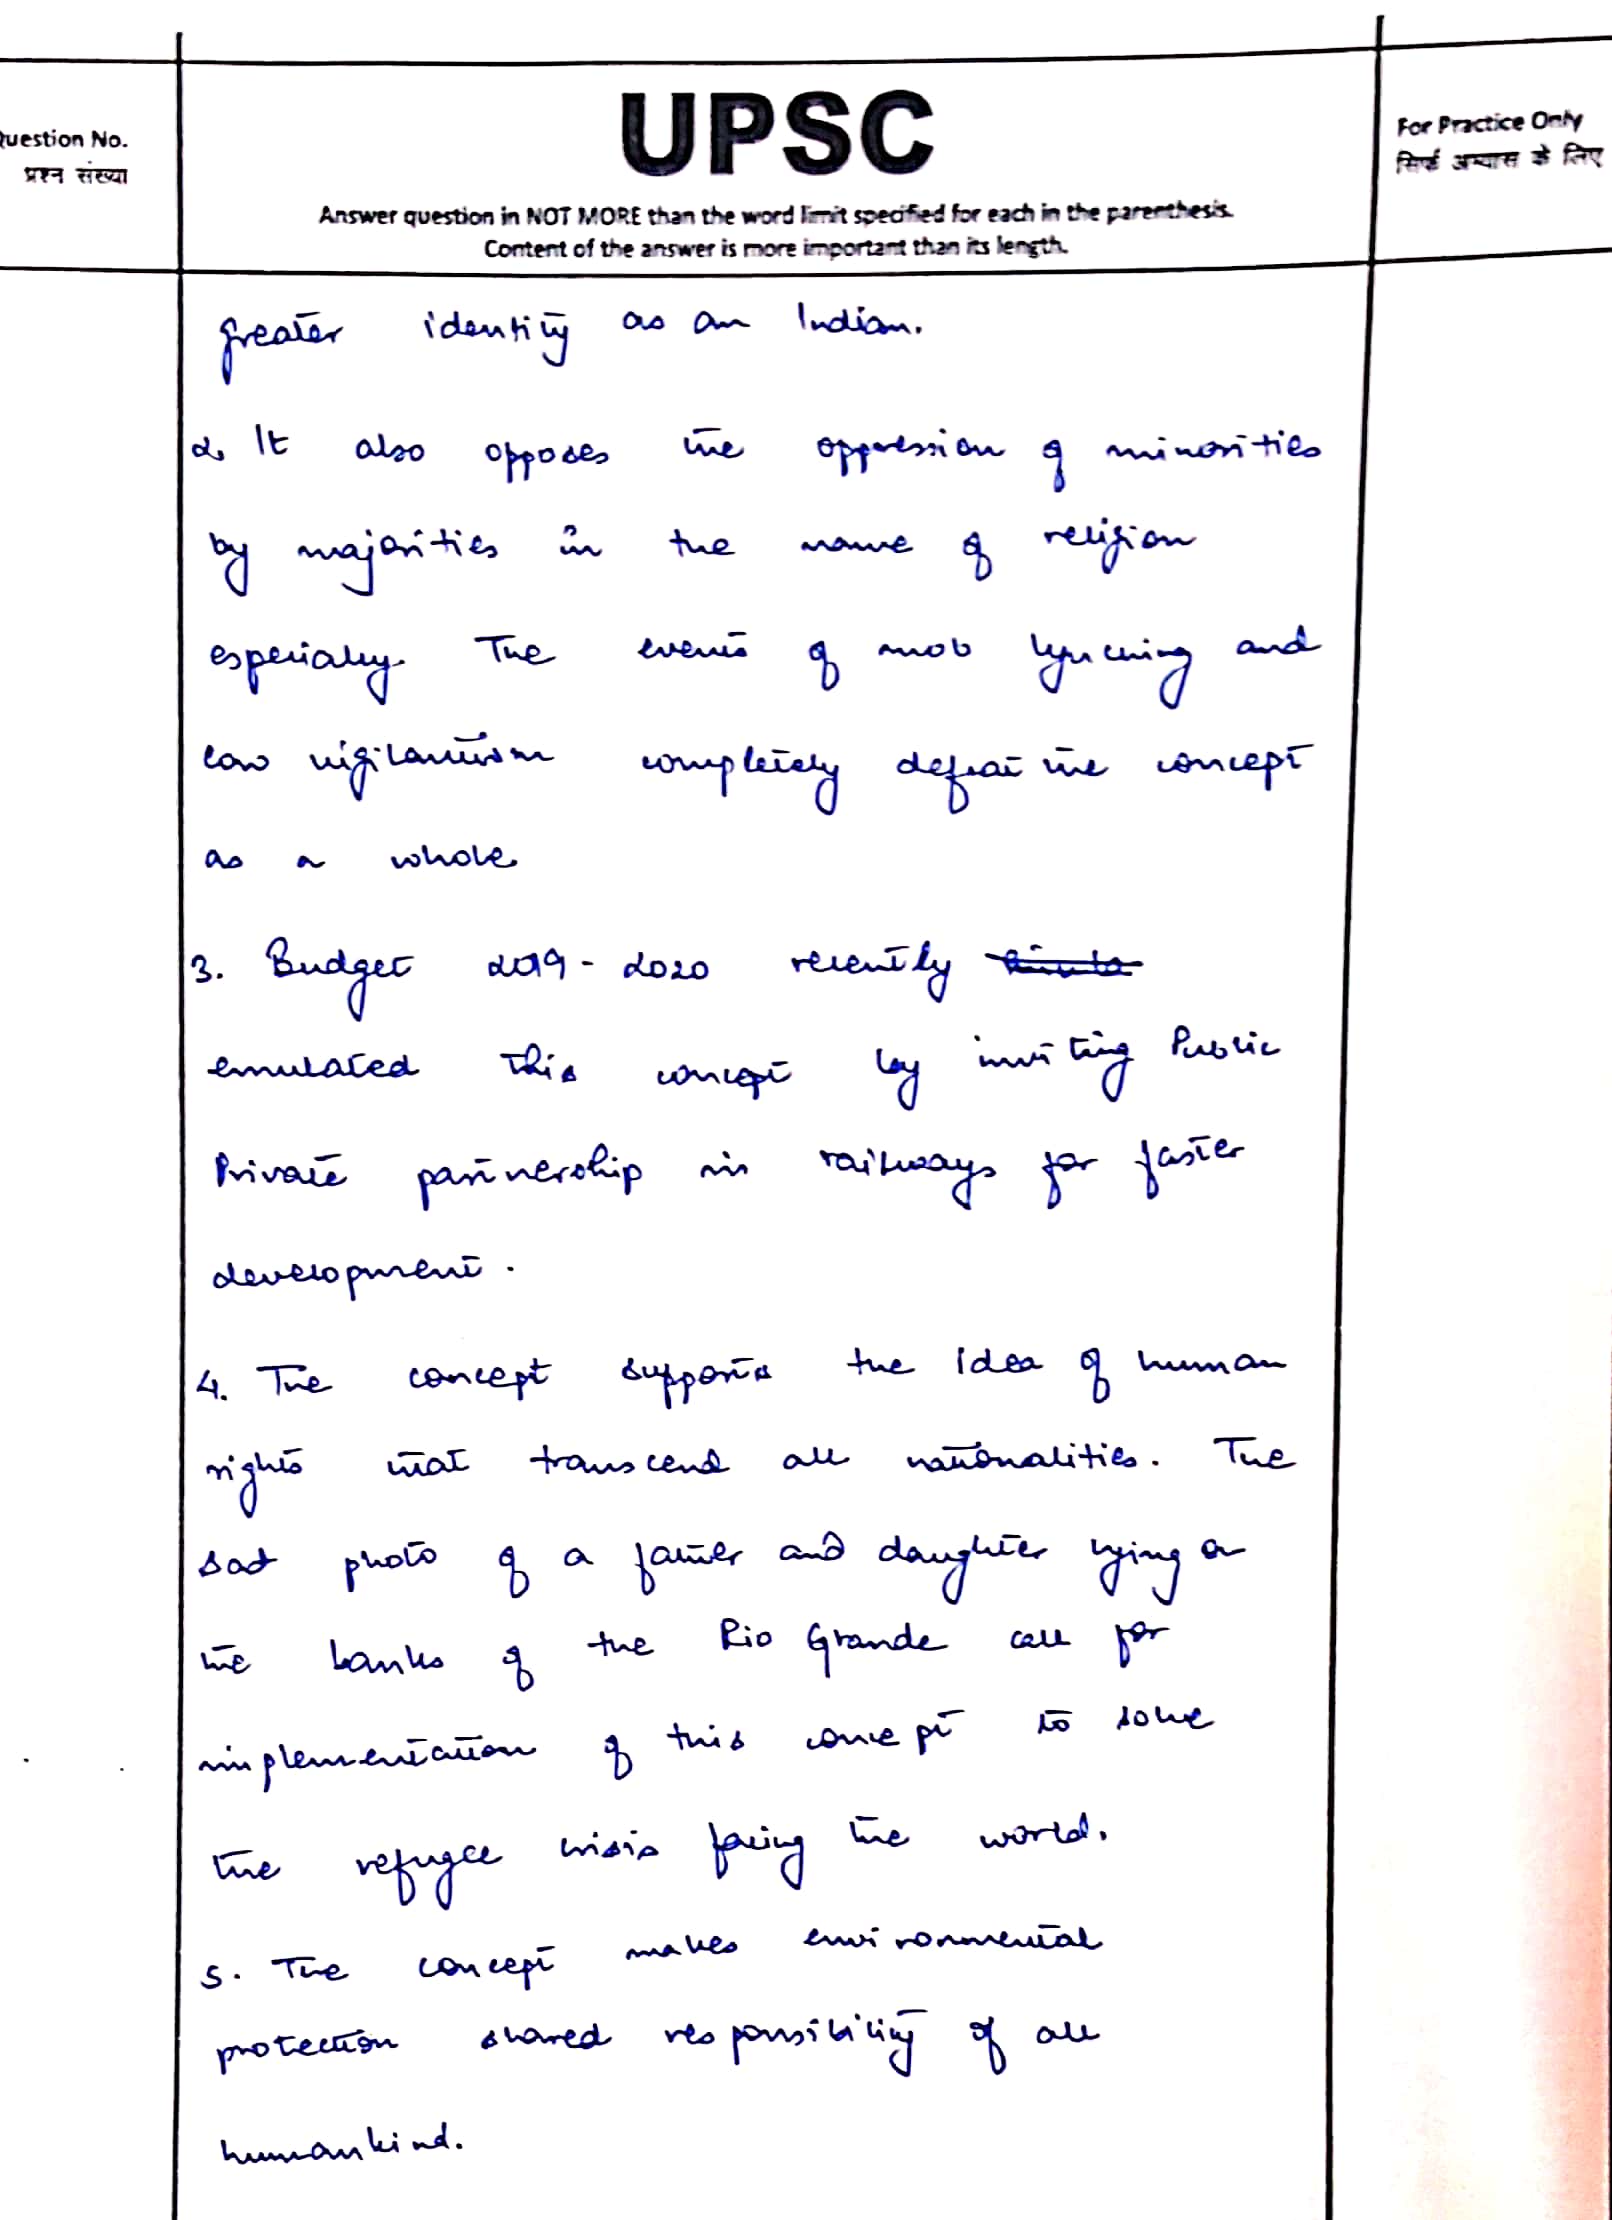 Question No.
प्रश्न संख्या
UPSC
Answer question in NOT MORE than the word limit specified for each in the parenthesis.
Content of the answer is more important than its length.
For Practice Only
सिर्फ अभ्यास के लिए
greater identity as an Indian.
2. It also opposes the oppression of minorities
by majorities in the name of religion
especially. The events of mob lynching and
cow vigilantism completely defeat the concept
as a whole.
3. Budget 2019-2020 recently
emulated this concept by inviting Public
Private partnership in railways for faster
development.
4. The concept supports the idea of human
rights that transcend all nationalities. The
sad photo of a father and daughter lying on
the banks of the Rio Grande call for
implementation of this concept to solve
the refugee crisis facing the world.
5. The concept makes environmental
protection shared responsibility of all
humankind.